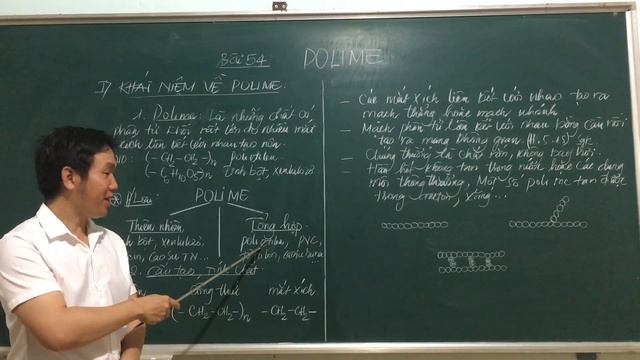 Bài 54 POLIME
I) KHÁI NIỆM VỀ POLIME
1. Polime: Là những chất có
phân tử khối rất lớn do nhiều mắt
xích liên kết với nhau tạo nên.
(-CH2-CH2-)n polietilen
(-C6H10O5-)n tinh bột, xenlulozơ
POLIME
Thiên nhiên
bột, xenlulozơ,
cao su TN...
Tổng hợp
polietilen, PVC,
cao su buna
2. Cấu tạo, Tính chất
Công thức mắt xích
(-CH2-CH2-)n -CH2-CH2-
- Các mắt xích liên kết với nhau tạo ra
mạch thẳng hoặc mạch nhánh
- Mạch phân tử liên kết với nhau bằng cầu nối
tạo ra mạng không gian (H.5.15)
- Chúng thường là chất rắn, không bay hơi.
- Hầu hết không tan trong nước hoặc các dung
môi thông thường, Một số polime tan được
trong axeton, xăng...